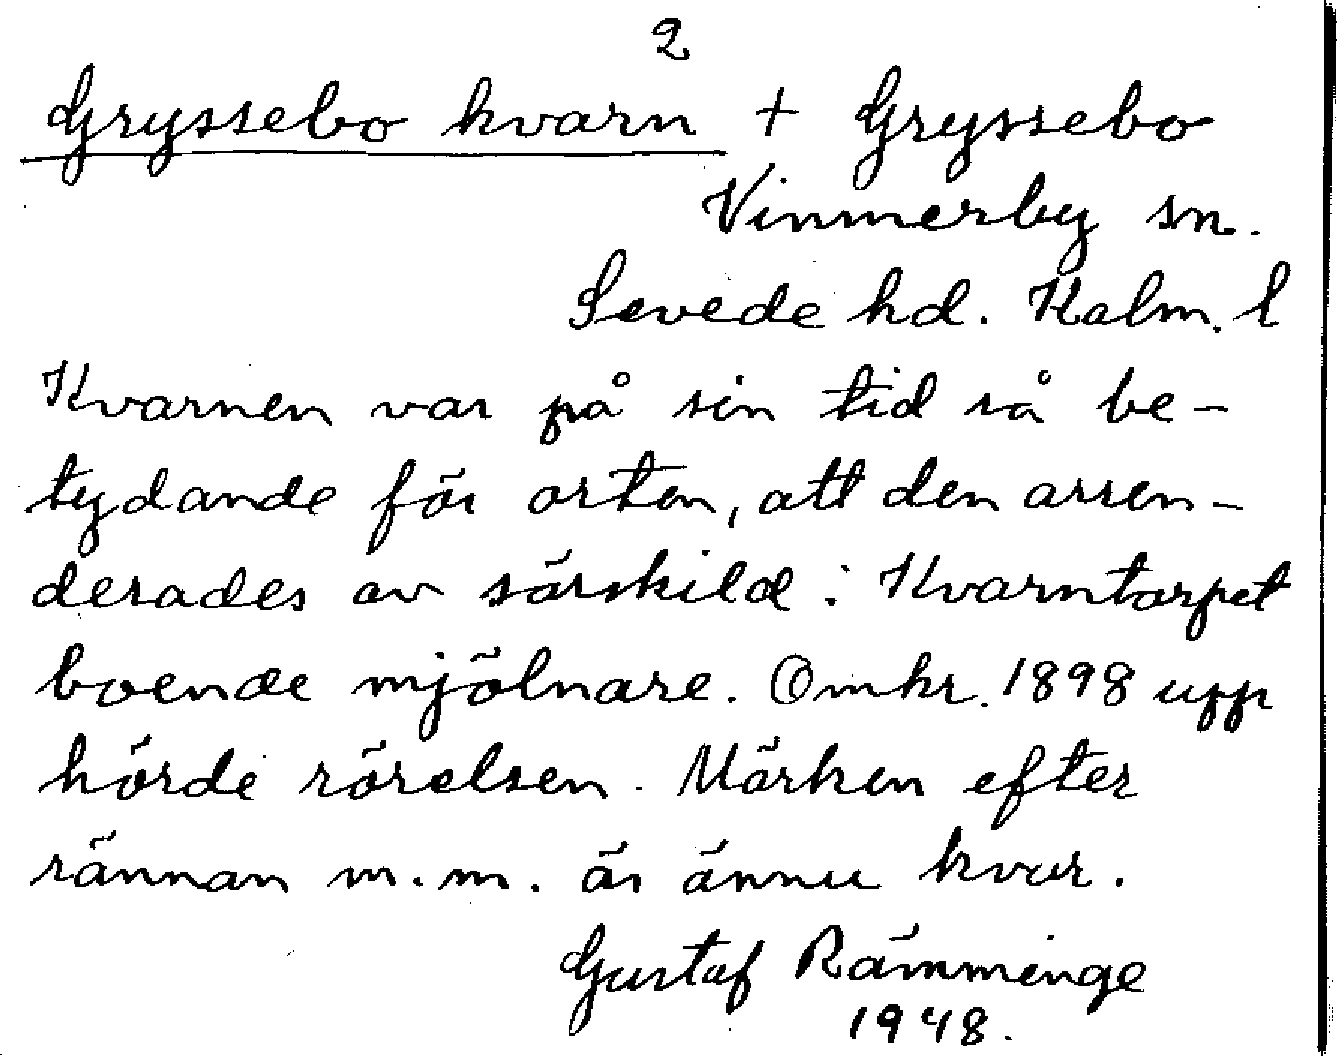 2
Gryssebo kvarn + Gryssebo
Vimmerby sn.
Sevede hd. Kalm. l
Kvarnen var på sin tid så be-
tydande för orten, att den arren-
derades av särskild i Kvarntorpet
boende mjölnare. Omkr. 1898 upp
hörde rörelsen. Märken efter
rännan m.m. är ännu kvar.
Gustaf Rämminge
1948.